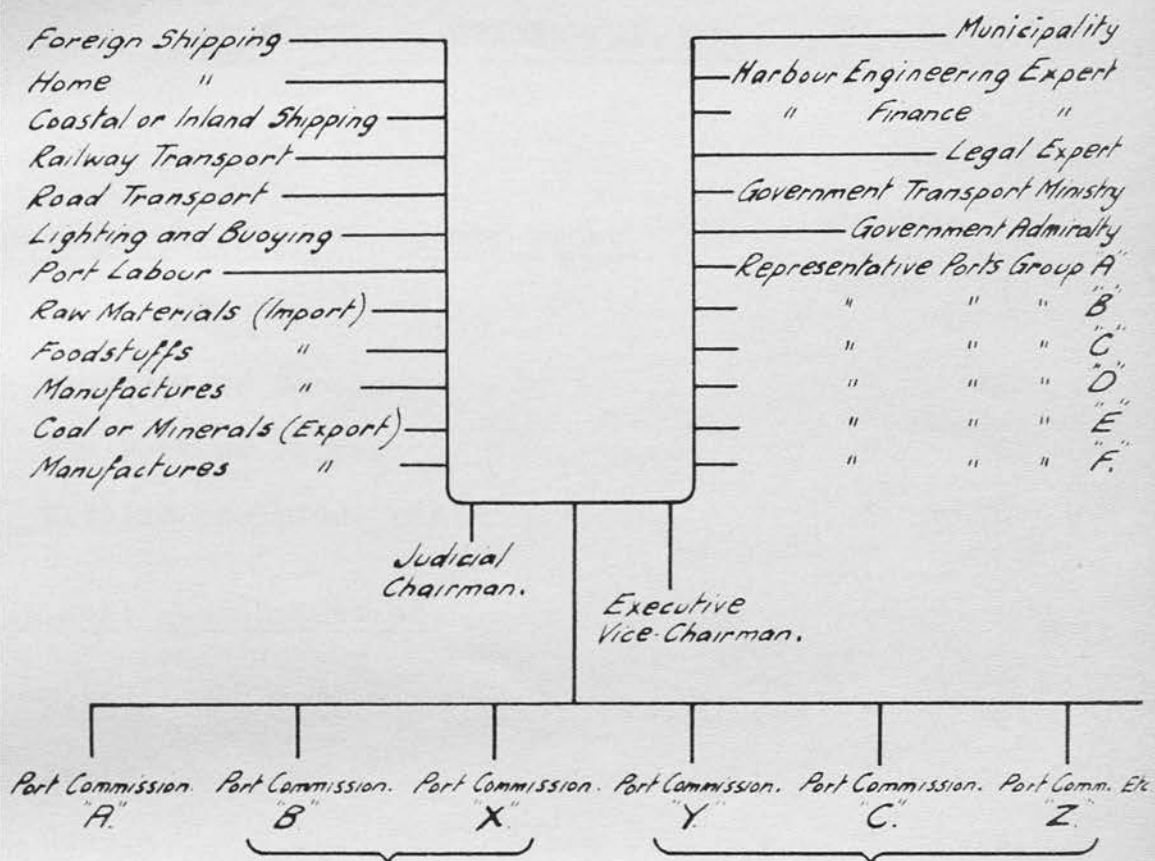 Foreign Shipping
Home "
Coastal or Inland Shipping
Railway Transport
Road Transport
Lighting and Buoying
Port Labour
Raw Materials (Import)
Foodstuffs "
Manufactures "
Coal or Minerals (Export)
Manufactures "
Municipality
Harbour Engineering Expert
" Finance "
Legal Expert
Government Transport Ministry
Government Admiralty
Representative Ports Group "A"
" " " "B"
" " " "C"
" " " "D"
" " " "E"
" " " "F."
Judicial
Chairman.
Executive
Vice-Chairman.
Port Commission.
"A."
Port Commission.
"B."
Port Commission.
"X."
Port Commission.
"Y."
Port Commission.
"C."
Port Comm. Etc
"Z."